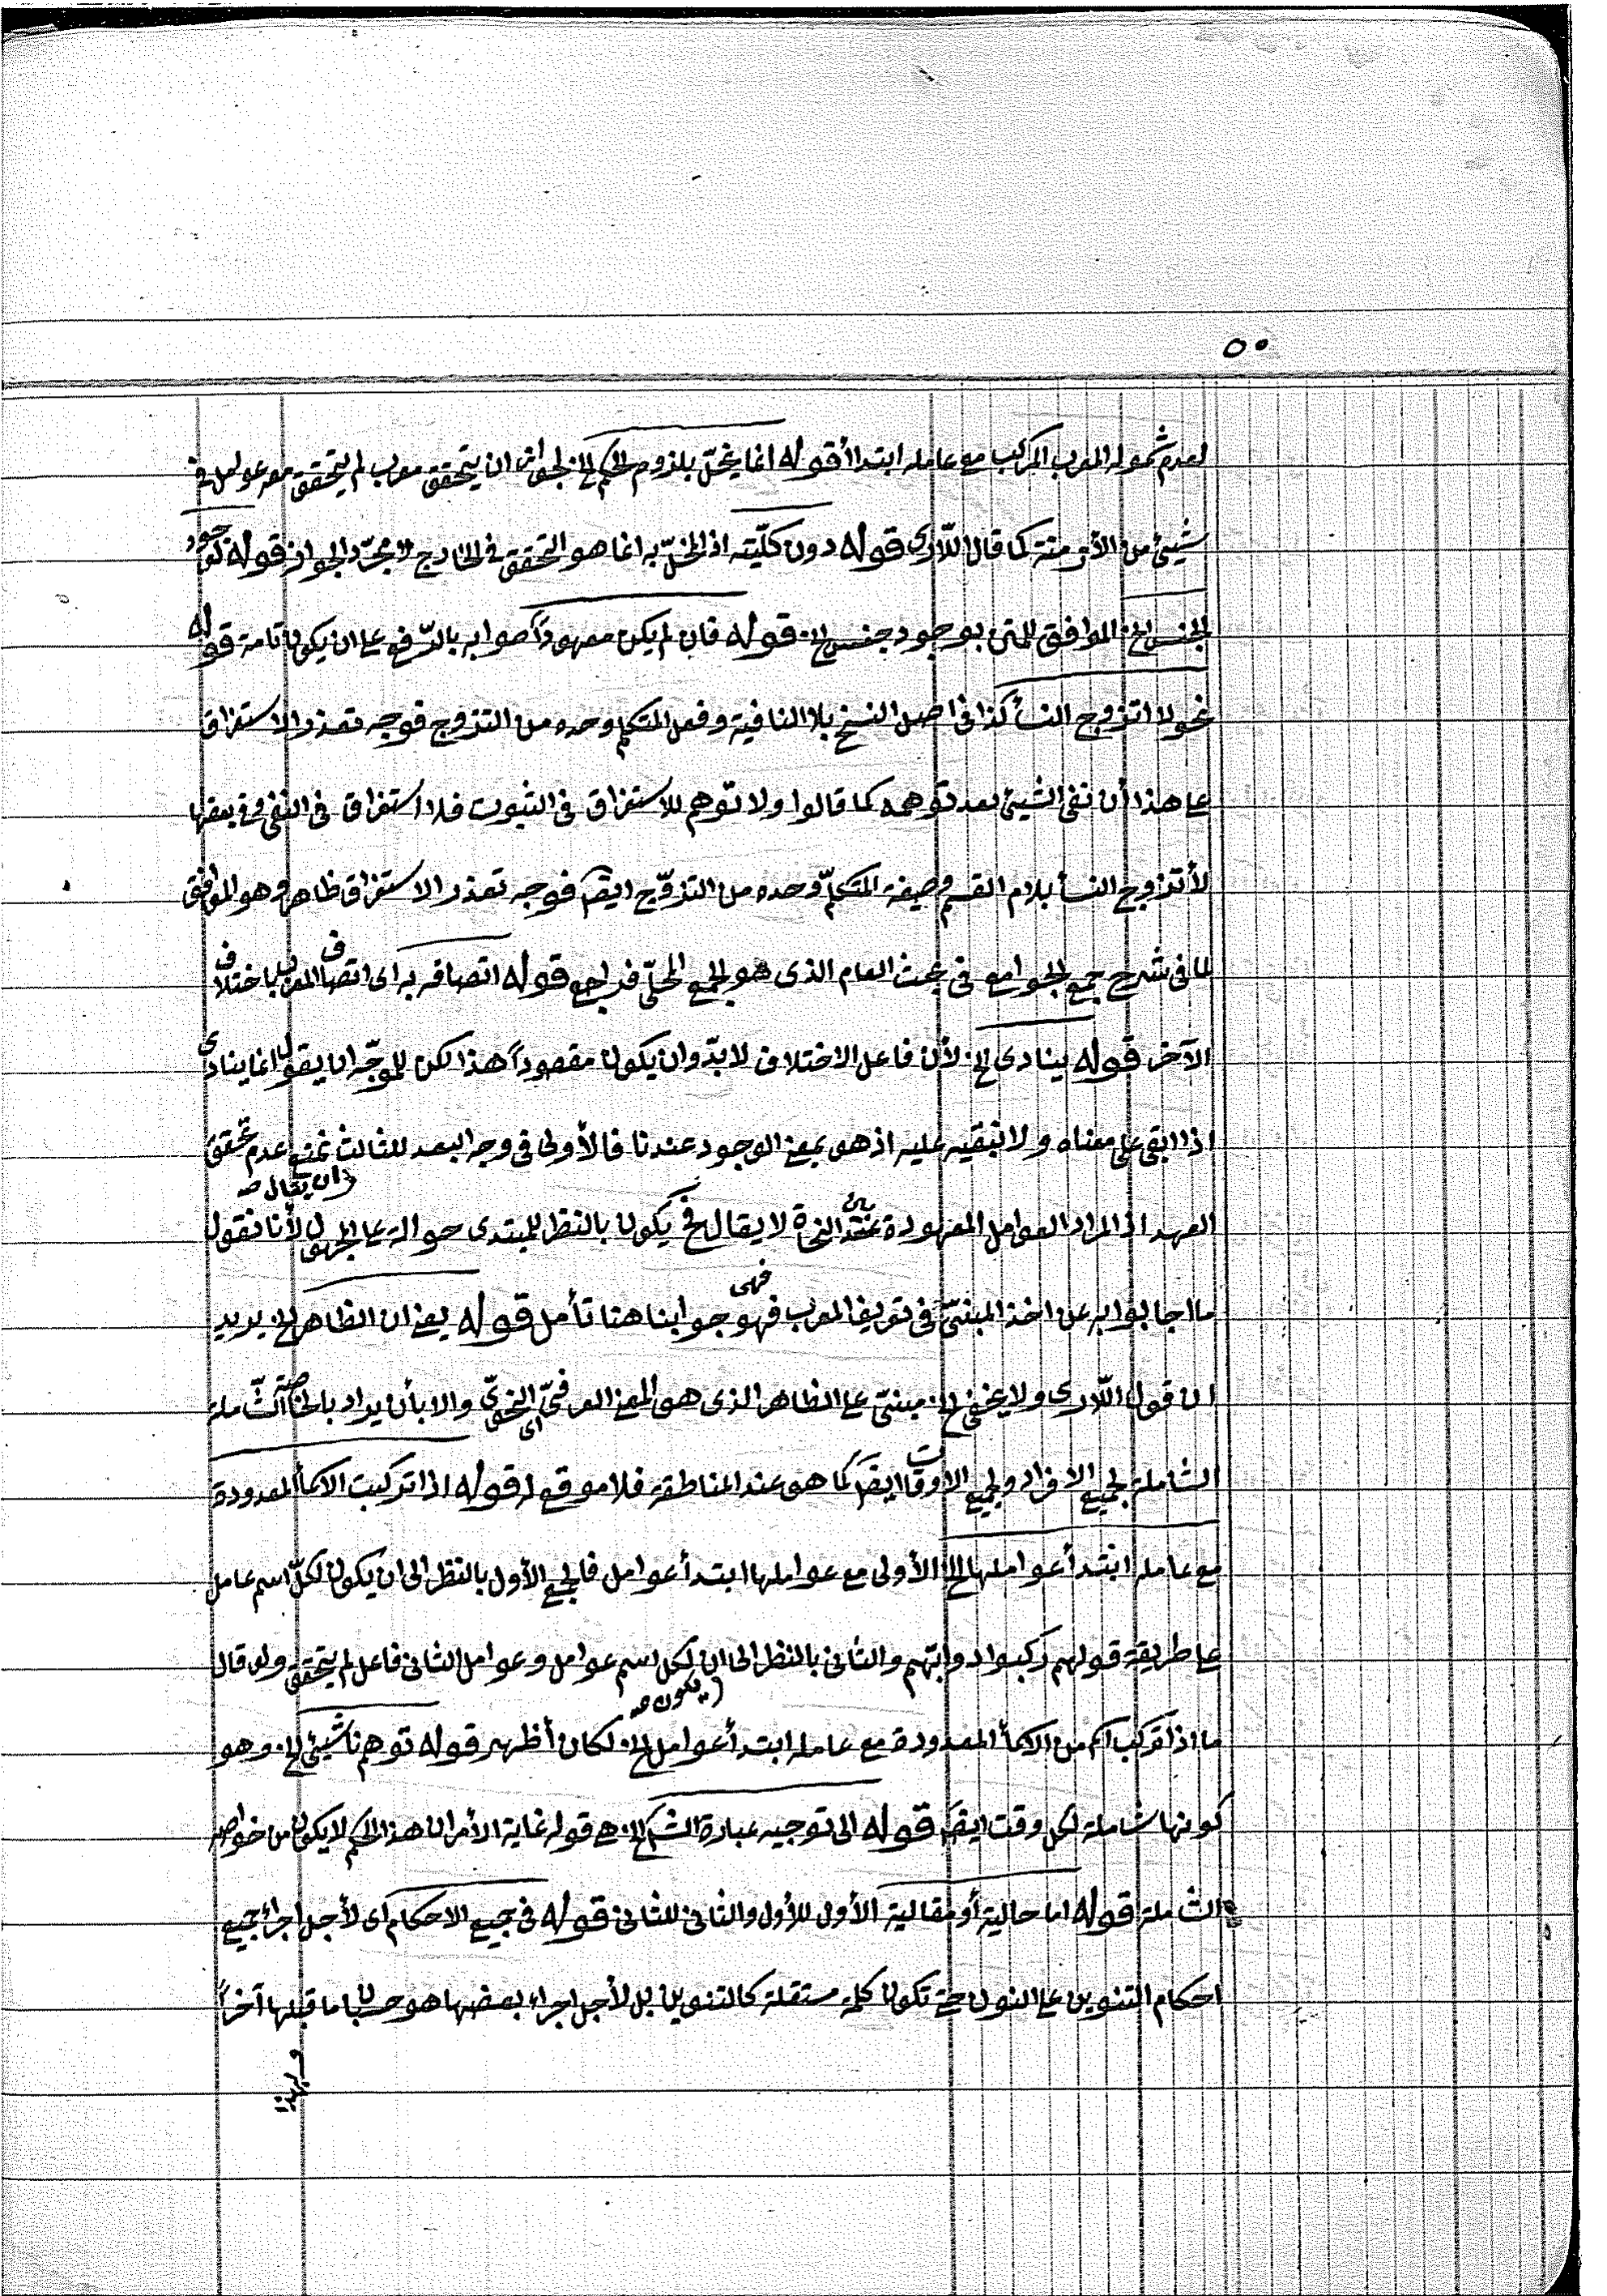 ٥٠
لعدم شموله المعرب المركب مع عامله ابتدأ أقوله انما يخلّ بلزوم الحكم الخ لجواز ان يتحقق معرب لم يتحقق معه عوامل في
شيئ من الأزمنة كما قال اللّاري قوله دون كلّيته اذ المخلّ به انما هو التحقق في الخارج لا مجرّد الجواز قوله لوجود
الجنس الخ الموافق للمتن بوجود جنس الخ قوله فان لم يكن معهودا صوابه بالرّفع على ان يكون تامة قوله
نحو لا اتزوج النسأ كذا في اصل النسخ بلا النافية وفعل المتكلم وحده من التزوج فوجه تعذر الاستغراق
على هذا أن نفى الشيئ بعد توهمه كما قالوا ولا توّهم للاستغراق في الثبوت فلا استغراق في النفى وفى بعضها
لأتزوج النسأ بلام القسم وصيغة المتكلمّ وحده من التزوّج ايضا فوجه تعذر الاستغراق ظاهر وهو الموافق
لما فى شرح جمع الجوامع فى بحث العام الذى هو الجمع المحلّى فراجع قوله اتصافه به اى اتصاف المعرب باختلاف
الآخر قوله ينادى الخ لأن فاعل الاختلاف لا بدّ وان يكون مقصوداً هذا لكن للموجّه ان يقول انما ينادى
اذا ابقى على معناه ولا نبقيه عليه اذ هو بمعنى الوجود عندنا فالأولى فى وجه البعد للثالث نمنع عدم تحقق
(ان يقال صه
العهد اذ المراد العوامل المعهودة عند النحاة لا يقال فح يكون بالنظر للمبتدى حوالة على المجهول لأنا نقول
ما اجابوا به عن اخذ المبنىّ فى تعريف المعرب فهو جوابنا هنا تأمل قوله يعنى ان الظاهر الخ يريد
فهى
ان قول اللّارى ولا يخفى الخ مبنىّ على الظاهر الذى هو المعنى العرفىّ اى النحوىّ والا بأن يراد بالخاصة الشّاملة
الشاملة لجميع الافراد ولجميع الاوقات ايضا كما هو عند المناطقه فلا موقع له قوله اذا تركبت الاسمأ المعدودة
مع عامله ابتدأ عواملها الخ الأولى مع عواملها ابتدأ عوامل فالجمع الأول بالنظر الى ان يكون لكلّ اسم عامل
على طريقة قولهم ركبوا دوابّهم والثانى بالنظر الى ان لكل اسم عوامل وعوامل الثانى فاعل لم يتحقق ولو قال
(يكون صه
ما اذا تركب اسم من الاسمأ المعدودة مع عامله ابتدأ عوامل الخ لكان أظهر قوله توهم ناشيئ الخ وهو
كونها شاملة لكل وقت ايضا قوله الى توجيه عبارة الشم الخ هى قوله غاية الأمر ان هذا الحكم لا يكون من خواصه
الشاملة قوله اما حالية أو مقالية الأول للأول والثانى للثانى قوله فى جميع الاحكام اى لأجل اجراء جميع
احكام التنوين على النون حتى تكون كلمة مستقلة كالتنوين بل لأجل اجراء بعضها هو حسبان ما قبلها آخراً
وبهذا